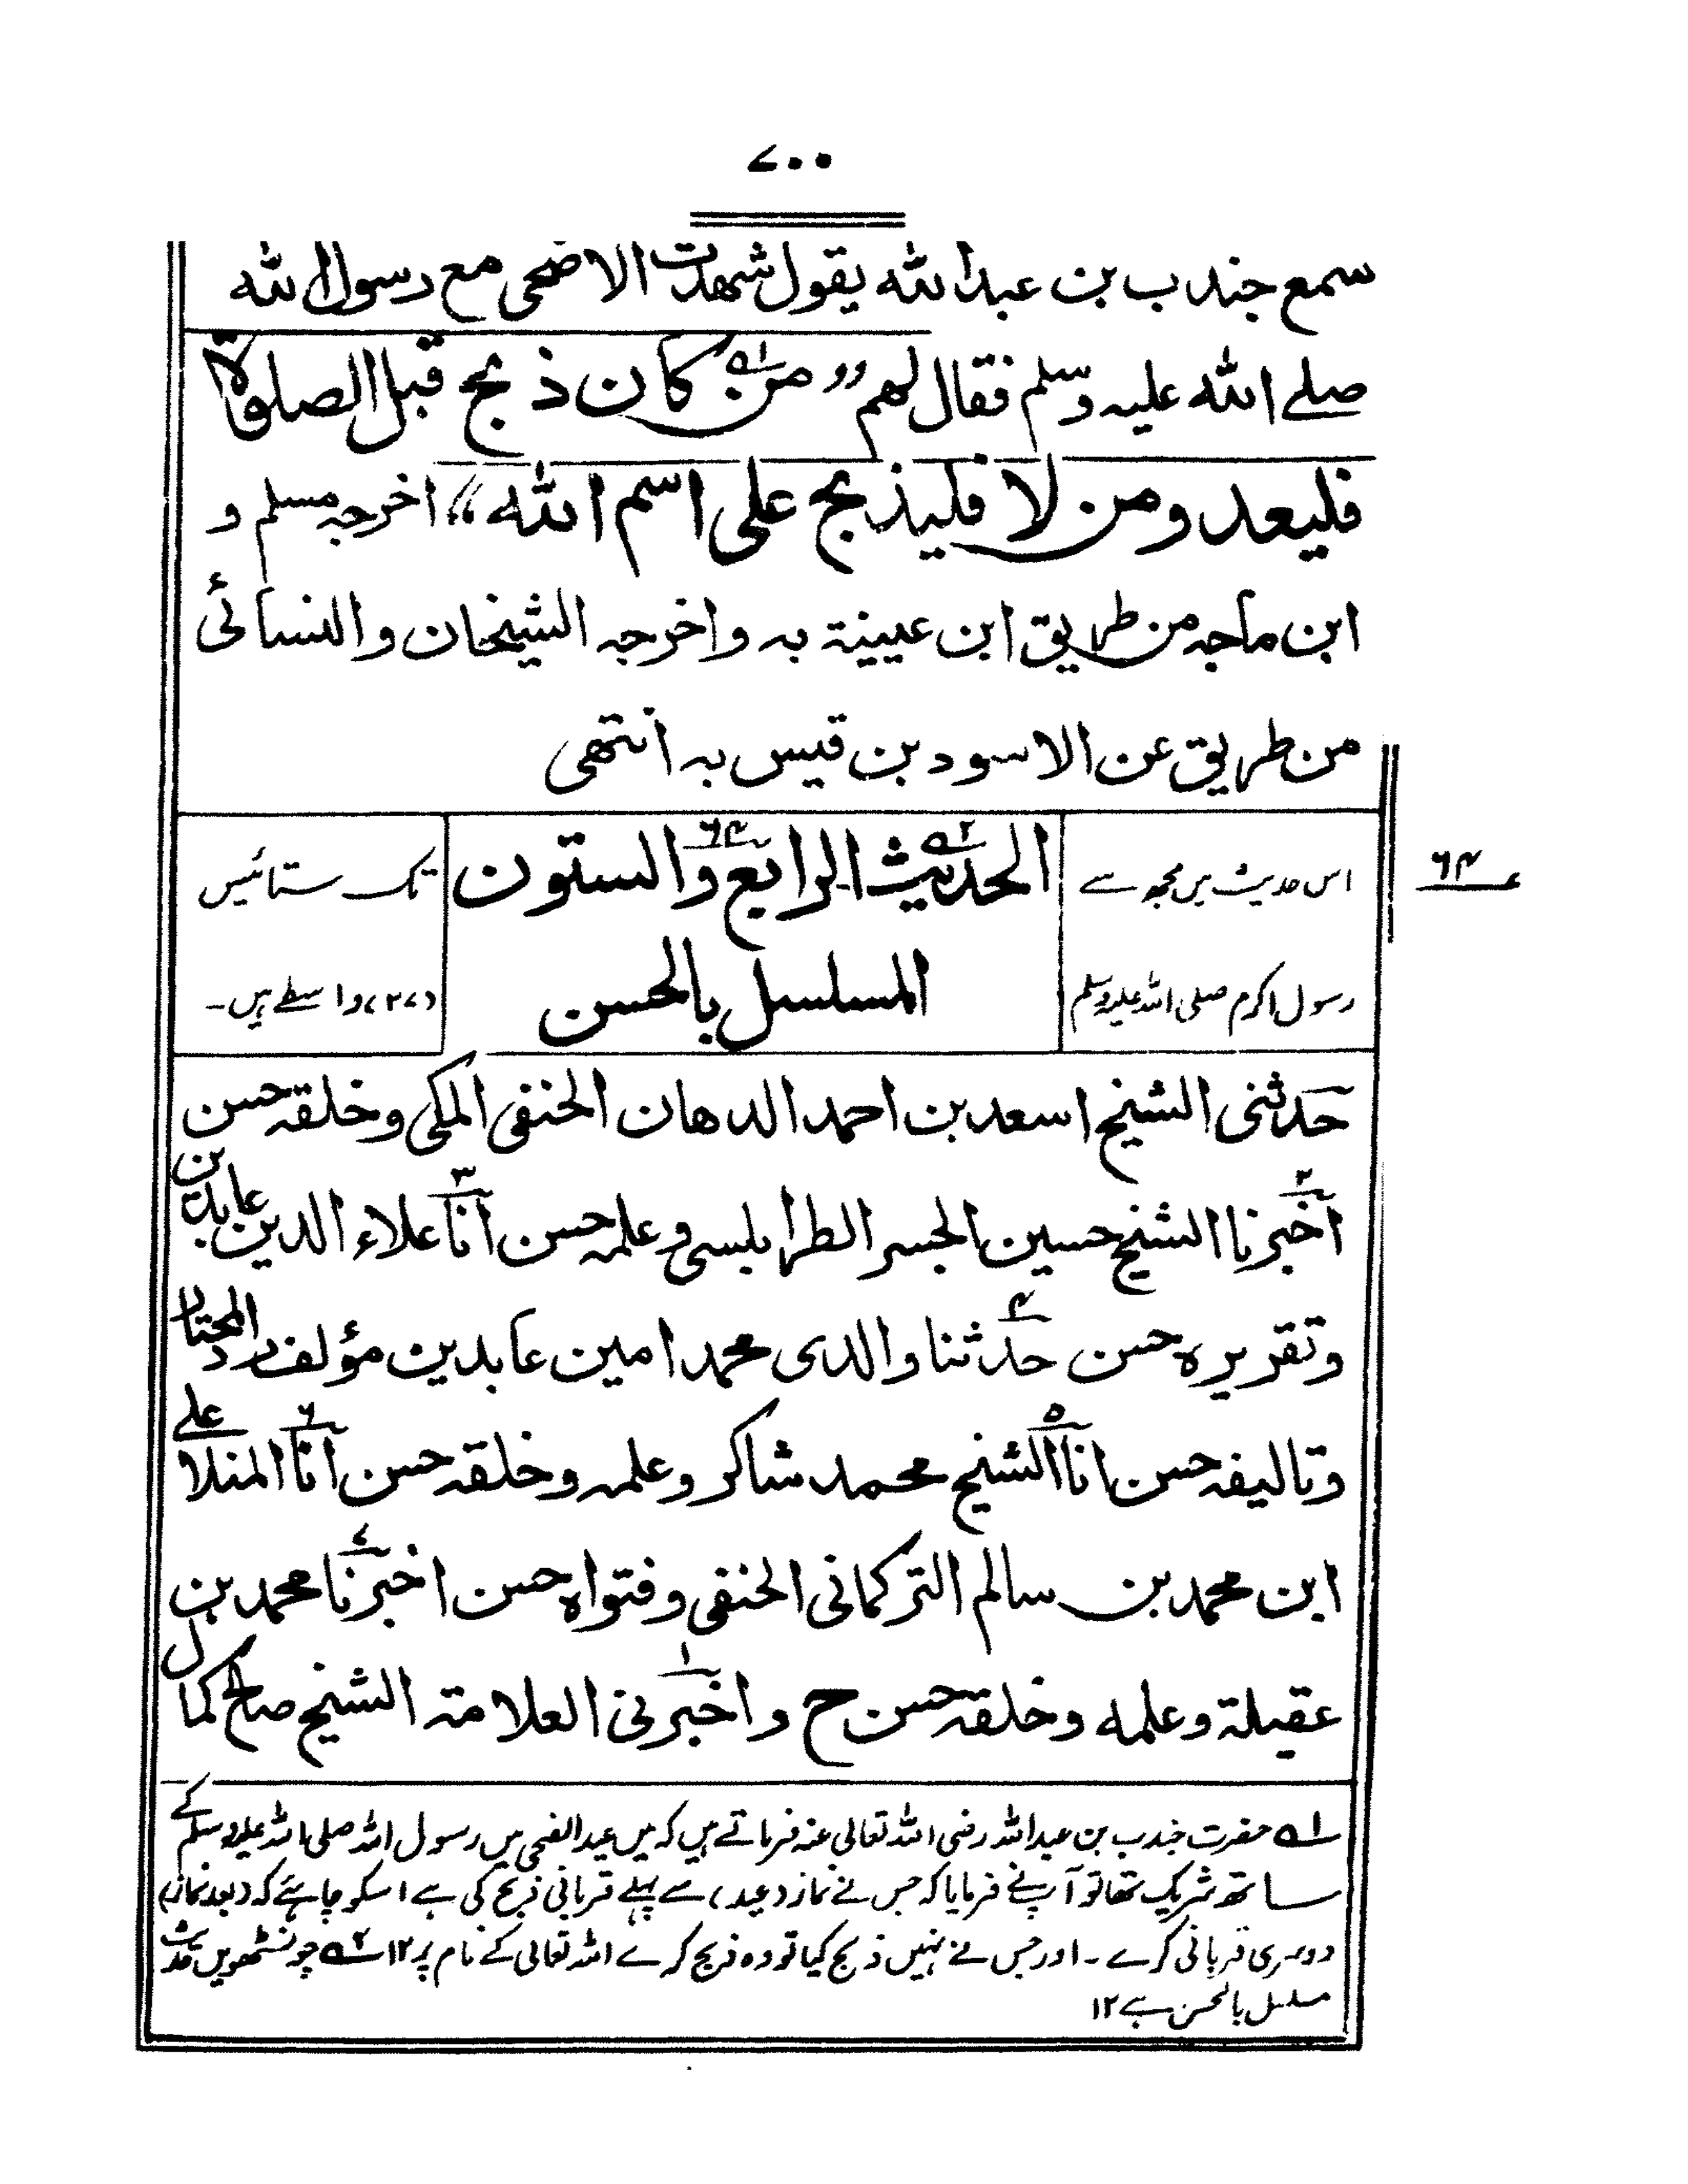 ۷۰۰
سمع جندب بن عبد الله يقول شهدت الاضحى مع رسول الله
صلے الله عليه وسلم فقال لهم ”من۱؎ كان ذبح قبل الصلوة
فليعد ومن لا فليذبح على اسم الله“ اخرجه مسلم و
ابن ماجه من طريق ابن عيينة به واخرجه الشيخان والنسائى
من طريق عن الاسود بن قيس به انتهى
۶۴
الحديث۲؎ الرابع۶۴ والستون
المسلسل بالحسن
اس حدیث میں مجھ سے
رسول اکرم صلی اللہ علیہ وسلم
تک ستائیس
(۲۷) واسطے ہیں۔
حدثنى الشيخ اسعد بن احمد الدهان الحنفى المكى وخلقه حسن
۲اخبرنا الشيخ حسين الجسر الطرابلسى وعلمه حسن ۳انا علاء الدين عابدين
وتقريره حسن ۴حدثنا والدى محمد امين عابدين مؤلف رد المحتار
وتاليفه حسن ۵انا الشيخ محمد شاكر وعلمه وخلقه حسن ۶انا المنلا علے
ابن محمد بن سالم التركمانى الحنفى وفتواه حسن ۷اخبرنا محمد بن
عقيلة وعلمه وخلقه حسن ح ۱واخبرنى العلامة الشيخ صالح كمال
۱؎ حضرت جندب بن عبداللہ رضی اللہ تعالی عنہ فرماتے ہیں کہ میں عیدالضحی میں رسول اللہ صلی اللہ علیہ وسلم کے
ساتھ شریک تھا تو آپ نے فرمایا کہ جس نے نماز (عید) سے پہلے قربانی ذبح کی ہے اسکو چاہئے کہ (بعد نماز)
دوسری قربانی کرے۔ اور جس نے نہیں ذبح کیا تو وہ ذبح کرے اللہ تعالی کے نام پر ۱۲ ۲؎ چونسٹھویں حدیث
مسلسل بالحسن ہے ۱۲